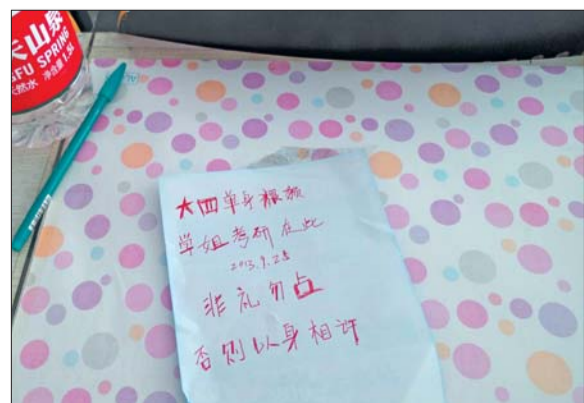 天山泉
GFU SPRING
天然水 净含量 1.5L
大四单身粮族
学姐考研在此
2013.9.28
非礼勿占
否则以身相许